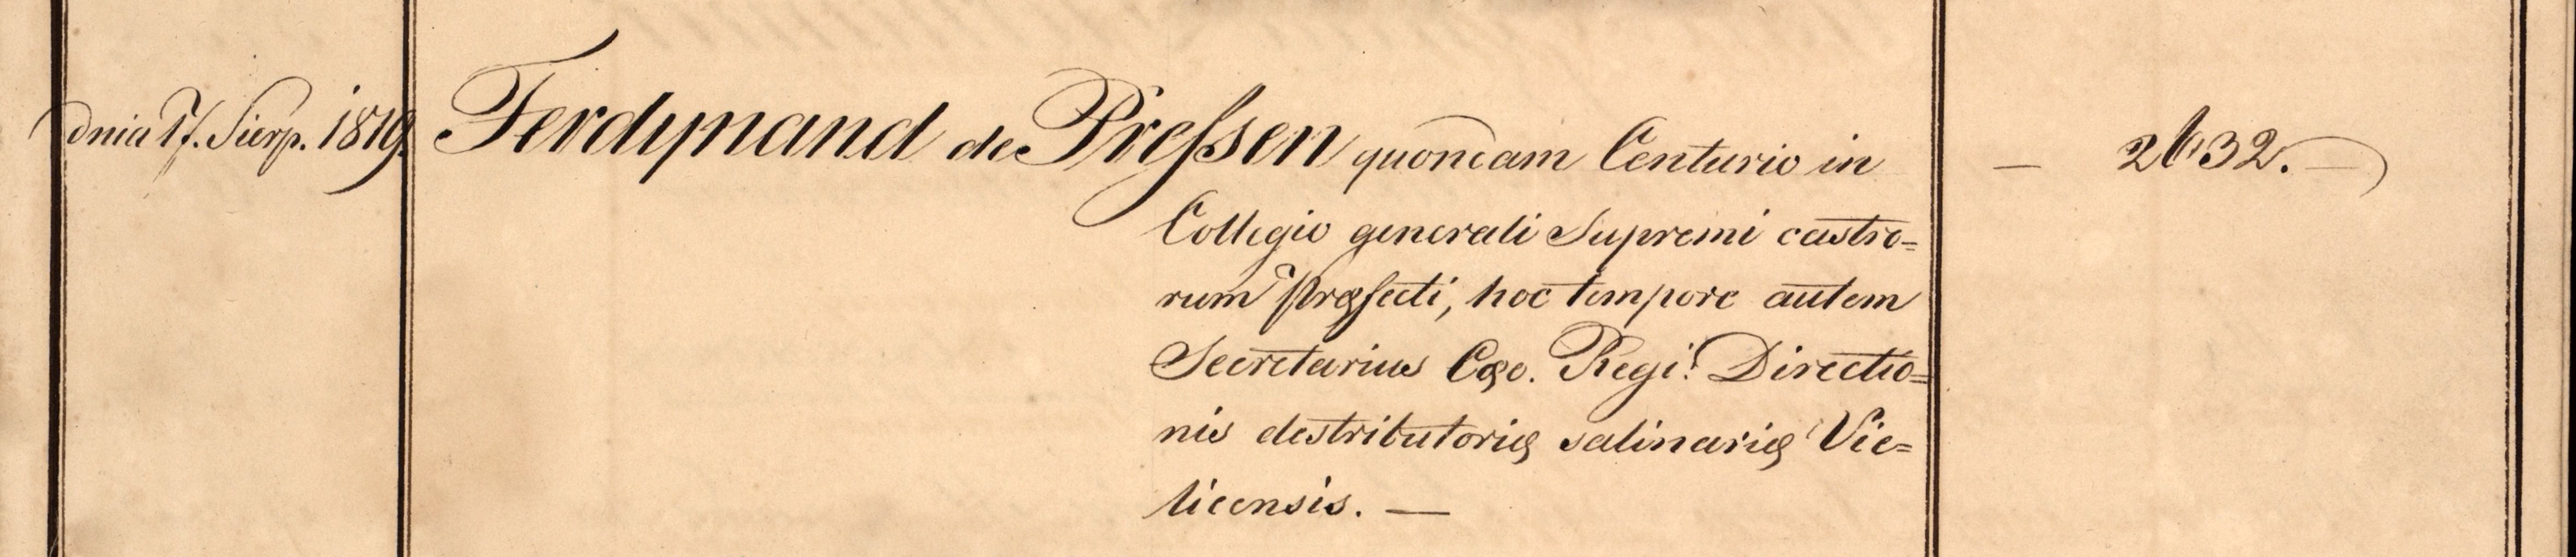 dnia 17. Sierp. 1819. Ferdynand de Preſsen quondam Centurio in — 2632. —
Collegio generali Supremi castro=
rum Præfecti, hoc tempore autem
Secretarius Cæo. Regi: Directio=
nis destributoriæ salinariæ Vie=
licensis. —